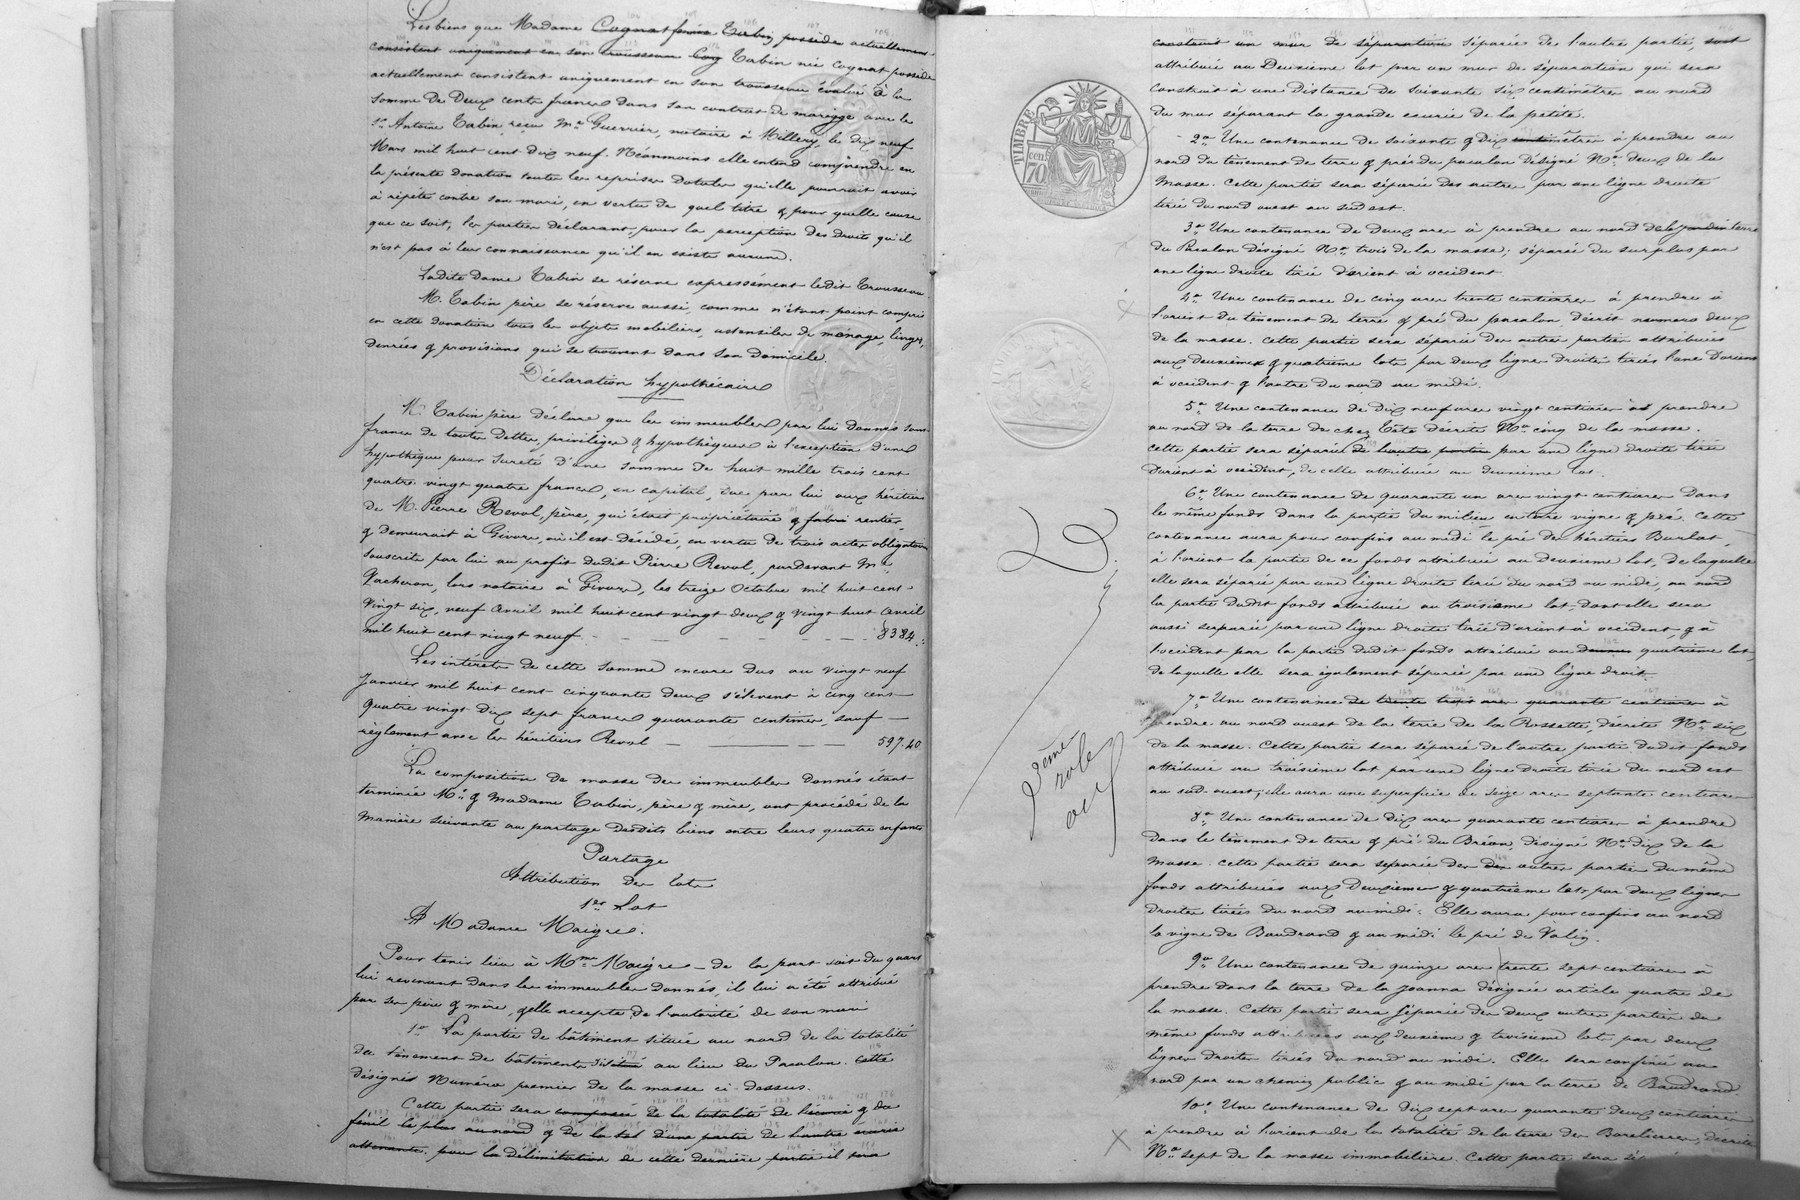 Les biens que Madame Cognat femme Tabin possède actuellement
consistent uniquement en son trousseau Cog Tabin née Cognat possède
actuellement consistent uniquement en son trousseau évalué à la
somme de Deux cents francs dans son contrat de mariage avec le
Sr. Antoine Tabin, reçu Me Guerrier, notaire à Millery, le dix neuf
Mars mil huit cent dix neuf. Néanmoins elle entend comprendre en
la présente donation toutes les reprises dotales qu'elle pourrait avoir
à répéter contre son mari, en vertu de quel titre & pour quelle cause
que ce soit, les parties déclarant, pour la perception des droits qu'il
n'est pas à leur connaissance qu'il en existe aucune.
Ladite Dame Tabin se réserve expressément ledit Trousseau.
M. Tabin père se réserve aussi, comme n'étant point compris
en cette donation tous les objets mobiliers, ustensiles de ménage, linges,
denrées & provisions qui se trouvent dans son domicile
Déclaration hypothécaire
M. Tabin père déclare que les immeubles par lui donnés sont
francs de toutes dettes, privilèges & hypothèques à l'exception d'une
hypothèque pour sureté d'une somme de huit mille trois cent
quatre vingt quatre francs, en capital, due par lui aux héritiers
de M. Pierre Revol, père, qui était propriétaire & rentier
& demeurait à Givors, où il est décédé, en vertu de trois actes obligatoires
souscrits par lui au profit dudit Pierre Revol, pardevant Me
lors notaire à Givors, les treize Octobre mil huit cent
vingt six, neuf Avril mil huit cent vingt deux & vingt huit Avril
mil huit cent vingt neuf. - - - - - - 8384.
Les intérêts de cette somme encore dus au vingt neuf
Janvier mil huit cent cinquante deux s'élèvent à cinq cent
quatre vingt dix sept francs quarante centimes, sauf
règlement avec les héritiers Revol - - - - - 597.40
La composition de masse des immeubles donnés étant
terminée Mr. & Madame Tabin, père & mère, ont procédé de la
manière suivante au partage desdits biens entre leurs quatre enfants
Partage
Attribution des lots
1er. Lot
A Madame Maigre.
Pour tenir lieu à Mme Maigre de la part soit du quart
lui revenant dans les immeubles donnés, il lui a été attribué
par ses père & mère, qu'elle accepte de l'autorité de son mari
1o La partie de bâtiment située au nord de la totalité
du tènement de bâtiments situé au lieu du Pacalon. Cette
désignés Numéro premier de la masse ci-dessus.
Cette partie sera composée de la totalité de l'écurie & du
fenil le plus au nord & de la tot d'une partie de l'autre écurie
attenante. pour la délimitation de cette dernière partie il sera
TIMBRE
70 cen
3eme
role
construit un mur de séparation séparée de l'autre partie, soit
attribuée au Deuxième lot par un mur de séparation qui sera
construit à une distance de soixante six centimètres au nord
du mur séparant la grande écurie de la petite.
2o Une contenance de soixante & dix centimètres à prendre au
nord du tènement de terre & prés du pacalon désigné No. deux de la
masse. Cette partie sera séparée des autres par une ligne droite
tirée du nord ouest au sud est.
3o Une contenance de deux ares à prendre au nord de la jardin terre
du Pacalon désigné No. trois de la masse; séparée du surplus par
une ligne droite tirée d'orient à occident.
4o Une contenance de cinq ares trente centiares à prendre à
l'orient du tènement de terre & pré du pacalon, décrit numero deux
de la masse. Cette partie sera séparée des autres parties attribuées
aux deuxième & quatrième lots, par deux lignes droites tirées l'une d'orient
à occident & l'autre du nord au midi.
5o Une contenance de dix neuf ares vingt centiares à prendre
au nord de la terre de chez décrite No. cinq de la masse.
Cette partie sera séparée de l'autre portion par une ligne droite tirée
d'orient à occident, de celle attribuée au deuxième lot.
6o Une contenance de quarante un ares vingt centiares dans
le même fonds dans la partie du milieu en terre vigne & pré. Cette
contenance aura pour confins au midi le pré des héritiers Burlat,
à l'orient la partie de ce fonds attribuée au Deuxième lot, de laquelle
elle sera séparée par une ligne droite tirée du nord au midi, au nord
la partie dudit fonds attribuée au troisième lot, dont elle sera
aussi séparée par une ligne droite tirée d'orient à occident, & à
l'occident par la partie dudit fonds attribuée au quatrième lot,
de laquelle elle sera également séparée par une ligne droite.
7o Une contenance de trente trois ares quarante centiares à
prendre au nord ouest de la terre de la Rossette, décrite No. six
de la masse. Cette partie sera séparée de l'autre partie dudit fonds
attribuée au troisième lot par une ligne droite tirée du nord est
au sud ouest; elle aura une superficie de seize ares septante centiares
8o Une contenance de dix ares quarante centiares à prendre
dans le tènement de terre & pré du Bréon, désigné No. dix de la
masse. Cette partie sera séparée des autres parties du même
fonds attribuées aux Deuxième & quatrième lots par deux lignes
droites tirées du nord au midi. Elle aura pour confins au nord
la vigne de Baudrand & au midi le pré de
9o Une contenance de quinze ares trente sept centiares à
prendre dans la terre de la Joanna désignée article quatre de
la masse. Cette partie sera séparée des deux autres parties du
même fonds attribuées aux deuxième & troisième lot par deux
lignes droites tirées du nord au midi. Elle sera confinée au
nord par un chemin public & au midi par la terre de Baudrand
10o Une contenance de dix sept ares quarante deux centiares
à prendre à l'orient de la totalité de la terre des décrite
No. sept de la masse immobilière. Cette partie sera